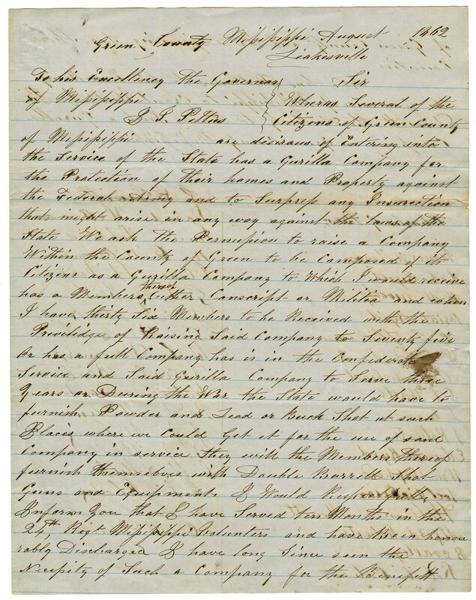 Green County Missisippi August 1862
Leakesville
To his Excellency the Governor Sir
of Missisippi Wheras Several of the
J. J. Pettus Citizens of Green County
of Missisippi are desirous of Entering into
the Service of the State has a Gurilla Company for
the Protection of their homes and Property against
the Federal Army and to Surpress any Insurection
that might arise in any way against the laws of the
State We ask the Permission to raise a Company
Within the County of Green to be Composed of its
Citizens as a Gurilla Company to Which I would receive
has a Members Either Conscript or Militia and when
thereof
I have thirty Six Members to be Received with the
Priviledge of Raising Said Company to Seventy five
Or has a full Company has is in the Confederate
Service and Said Gurilla Company to Serve three
Years or During the War the State would have to
furnish Powder and Lead or Buck Shot at such
Places where we could Get it for the use of said
Company in service they with the Members thereof
furnish themselves with Double Barrell Shot
Guns and Equipments I Would Respectfully
Inform You that I have Served ten Months in the
24th Regt Missisippi Volunters and have Been honou
rably Discharged I have long Since seen the
Necissity of Such a Company for the Benefitt